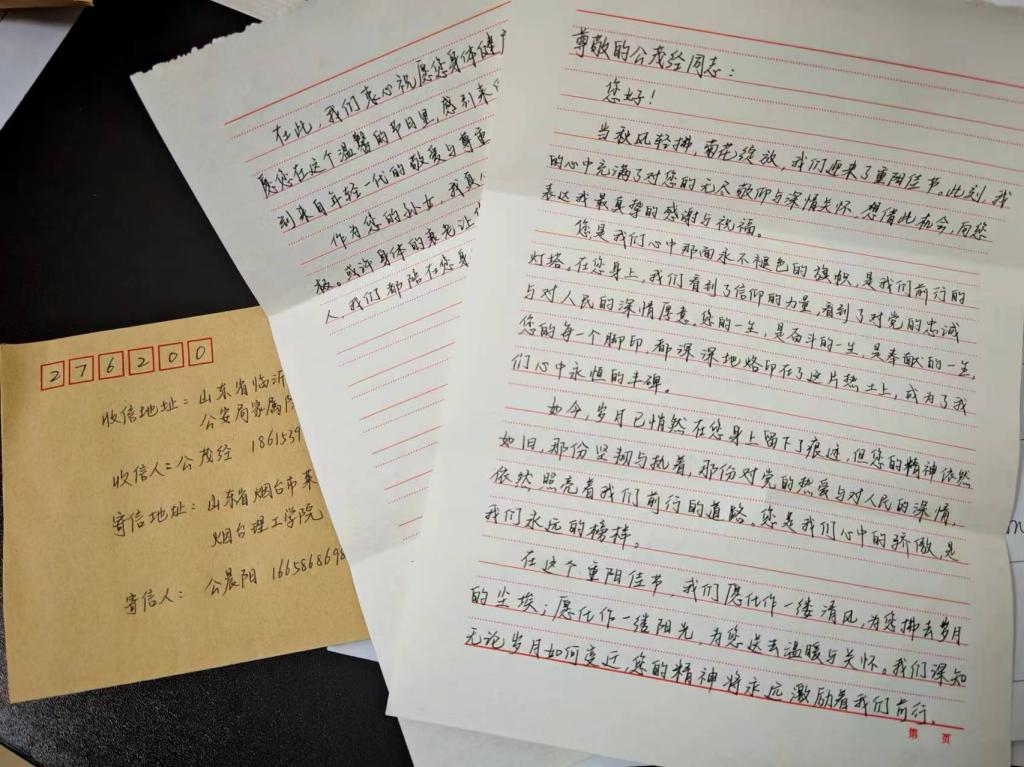 尊敬的公茂经同志：
您好！
当秋风轻拂，菊花绽放，我们迎来了重阳佳节。此刻，我
的心中充满了对您的无尽敬仰与深情关怀，想借此机会，向您
表达我最真挚的感谢与祝福。
您是我们心中那面永不褪色的旗帜，是我们前行的
灯塔。在您身上，我们看到了信仰的力量，看到了对党的忠诚
与对人民的深情厚意。您的一生，是奋斗的一生，是奉献的一生，
您的每一个脚印，都深深地烙印在了这片热土上，成为了我
们心中永恒的丰碑。
如今，岁月已悄然在您身上留下了痕迹，但您的精神依然
如旧，那份坚韧与执着，那份对党的热爱与对人民的深情，
依然照亮着我们前行的道路。您是我们心中的骄傲，是
我们永远的榜样。
在这个重阳佳节，我们愿化作一缕清风，为您拂去岁月
的尘埃；愿化作一缕阳光，为您送去温暖与关怀。我们深知
无论岁月如何变迁，您的精神将永远激励着我们前行。
第 页
在此，我们衷心祝愿您身体健
愿您在这个温馨的节日里，感到来
到来自年轻一代的敬爱与尊重
作为您的孙女，我真
极。或许身体的衰老让
人，我们都陪在您身
276200
收信地址：山东省临沂
公安局家属院
收信人：公茂经 1861539
寄信地址：山东省烟台市莱
烟台理工学院
寄信人： 公晨阳 1665868698